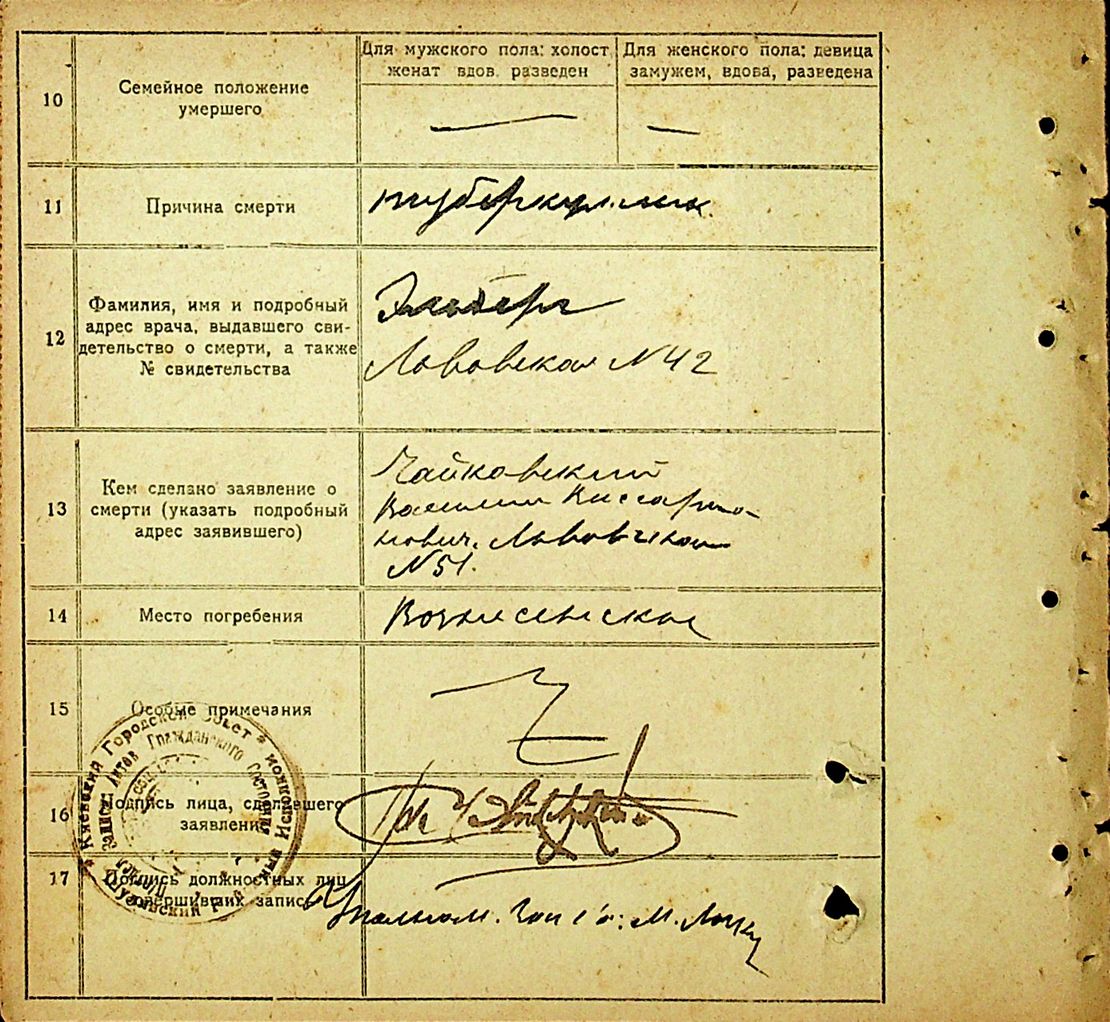 10
Семейное положение
умершего
Для мужского пола: холост
женат вдов. разведен
Для женского пола: девица
замужем, вдова, разведена
11
Причина смерти
туберкулиоз
12
Фамилия, имя и подробный
адрес врача, выдавшего сви-
детельство о смерти, а также
№ свидетельства
Львовская N 42
13
Кем сделано заявление о
смерти (указать подробный
адрес заявившего)
Чайковский
Василий Виссарио-
нович. Львовская
N 51.
14
Место погребения
Вознесенское
15
Особые примечания
16
Подпись лица, сделавшего
заявление
17
Подпись должностных лиц
совершивших запись
Киевский Городской Совет
Записи Актов Гражданского Состояния